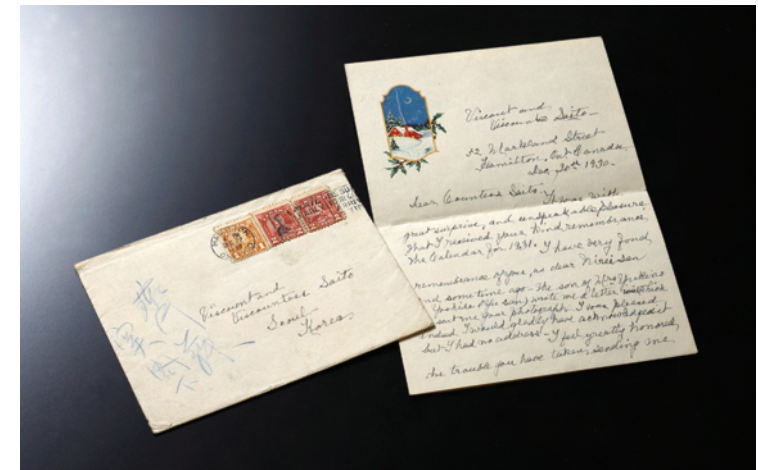 Viscount and
Viscountess Saito
Seoul
Korea.
Viscount and
Viscountess Saito—
52 Markland Street
Hamilton, Ont. Canada,
Dec. 30th 1930.
Dear Countess Saito.
It was with
great surprise, and unspeakable pleasure
that I received your kind remembrance,
the Calendar for 1931. I have very fond
remembrance of you, as dear
and some time ago the son of Mrs Yukino
wrote me a letter
sent me your photograph I was pleased
indeed I would gladly have acknowledged it
but I had no address— I feel greatly honored,
the trouble you have taken, sending me